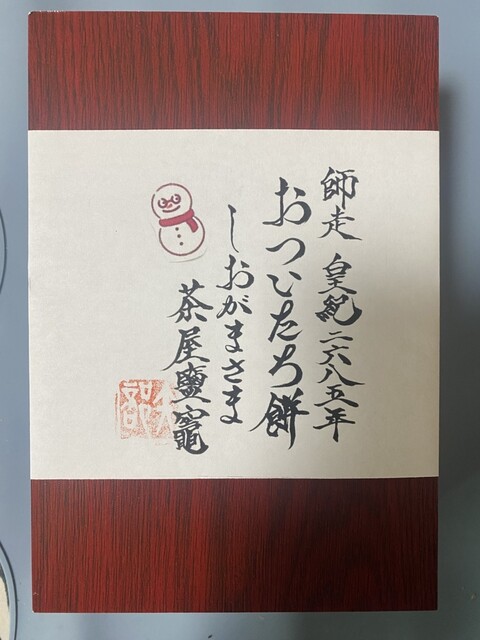 師走 皇紀二六八五年
おついたち餅
しおがまさま
茶屋鹽竈